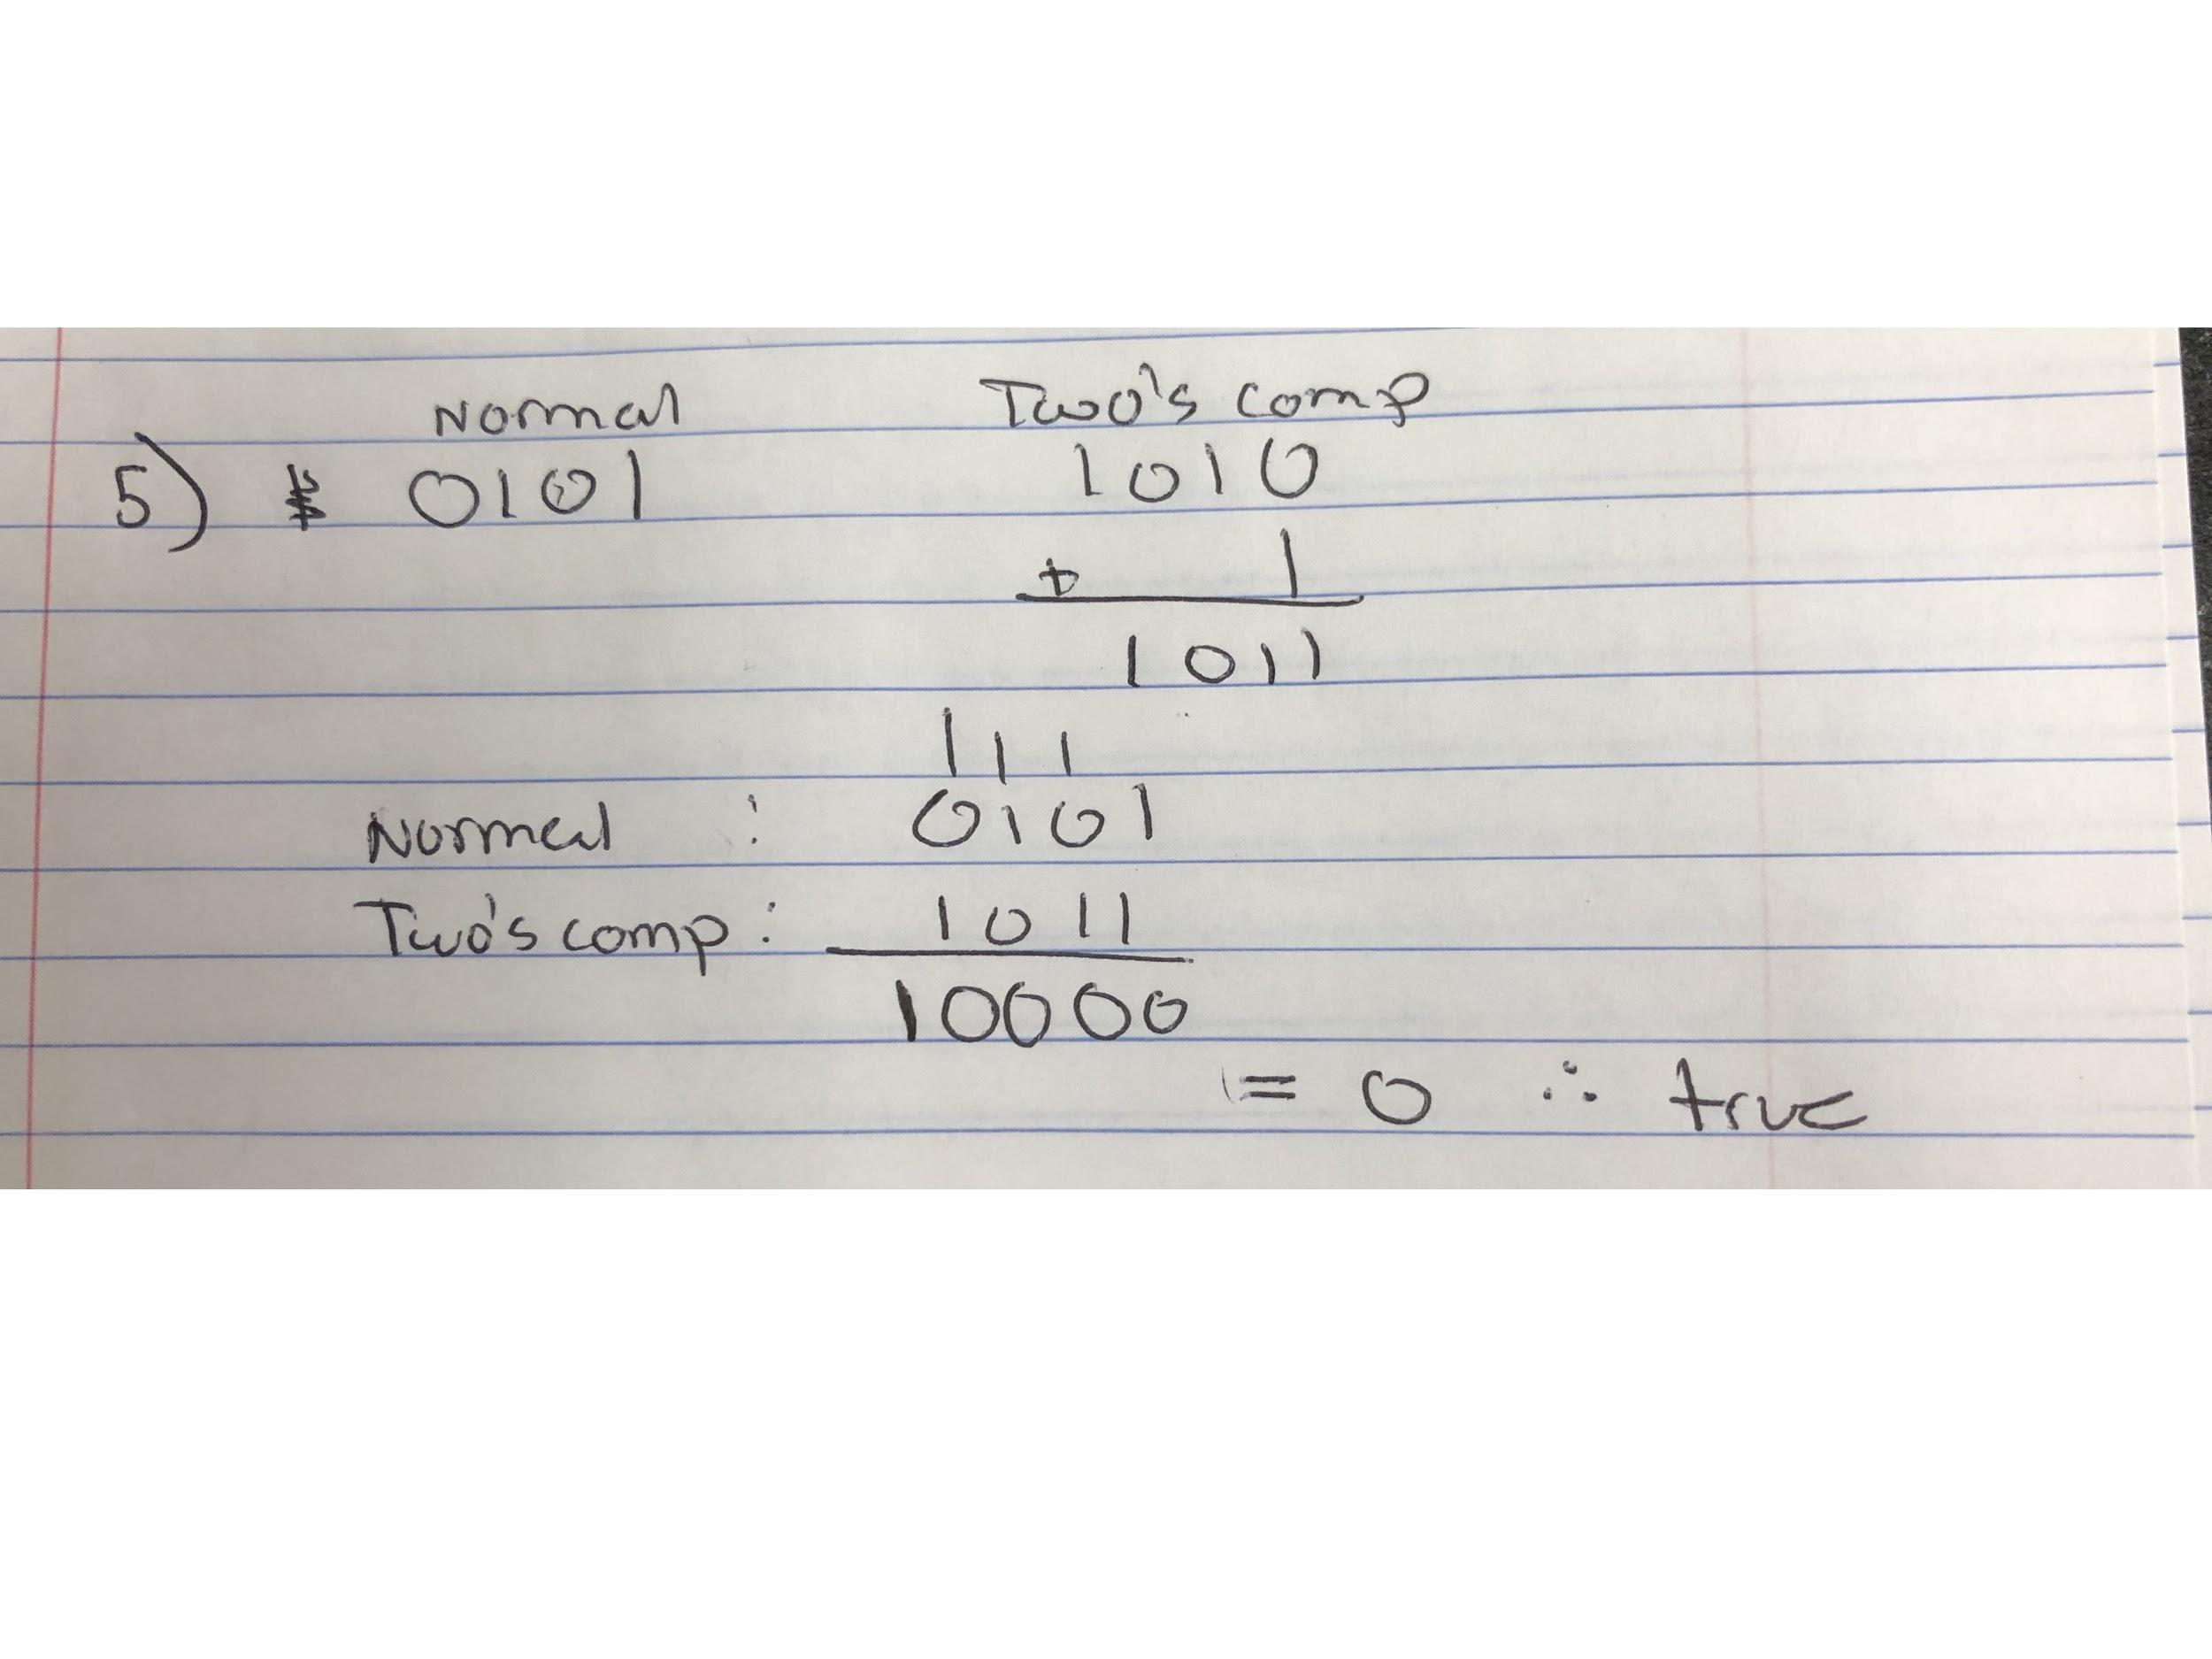 Normal Two's comp
5) 0101 1010
+ 1
1011
111
Normal : 0101
Two's comp: 1011
10000
= 0 ∴ true